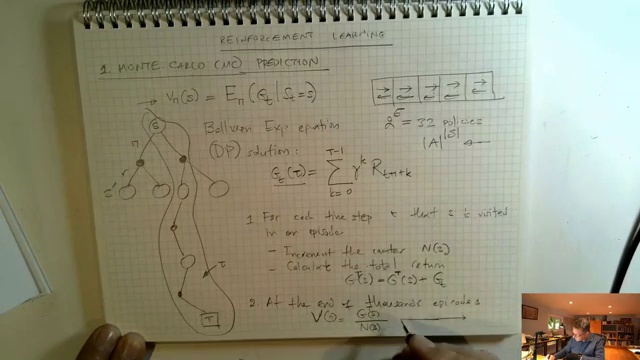 REINFORCEMENT LEARNING
1. MONTE CARLO (MC) PREDICTION
→ V_π(s) = E_π(G_t | S_t = s)
2^5 = 32 policies
|A|^|S| ←
Bellman Exp. equation
(DP) solution:
G_t(τ) = Σ_{k=0}^{T-1} γ^k R_{t+1+k}
S
π
r
s'
τ
T
1. For each time step t that s is visited
in an episode
- Increment the counter N(s)
- Calculate the total return
G^T(s) = G^T(s) + G_t
2. At the end of thousands episodes
V(s) = G(s)/N(s) →